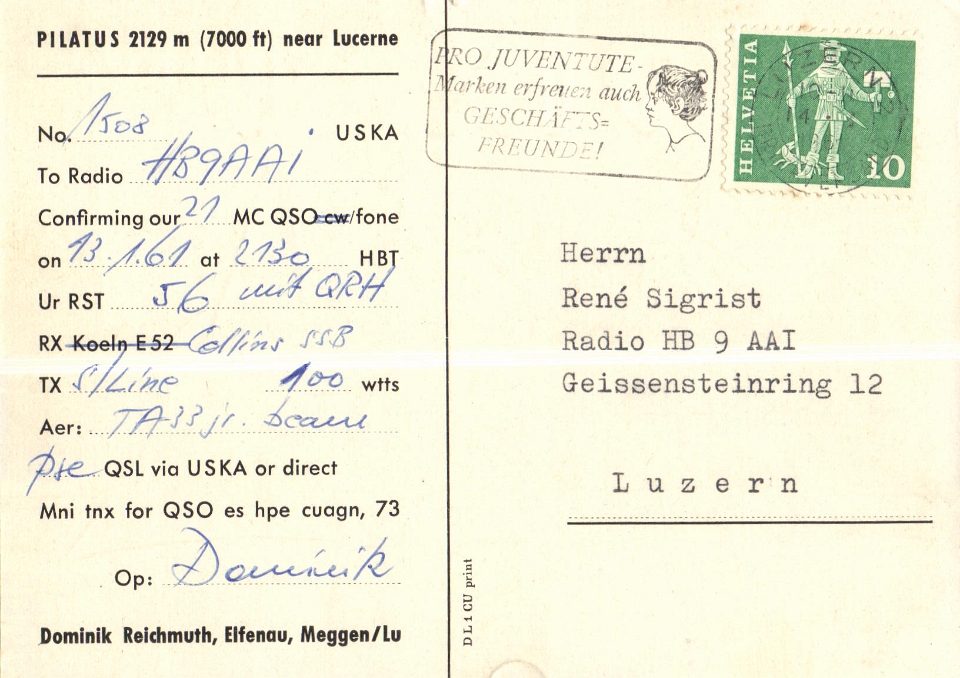 PILATUS 2129 m (7000 ft) near Lucerne
No. 1508 USKA
To Radio HB9AAI
Confirming our 21 MC QSO cw/fone
on 13.1.61 at 2130 HBT
Ur RST 56 mit QRH
RX Koeln E 52 Collins SSB
TX S/Line 100 wtts
Aer: TA33 jr. beam
pse QSL via USKA or direct
Mni tnx for QSO es hpe cuagn, 73
Op: Dominik
Dominik Reichmuth, Elfenau, Meggen/Lu
DL1CU print
PRO JUVENTUTE-
Marken erfreuen auch
GESCHÄFTS=
FREUNDE!
HELVETIA
LUZERN
10
Herrn
René Sigrist
Radio HB 9 AAI
Geissensteinring 12
Luzern